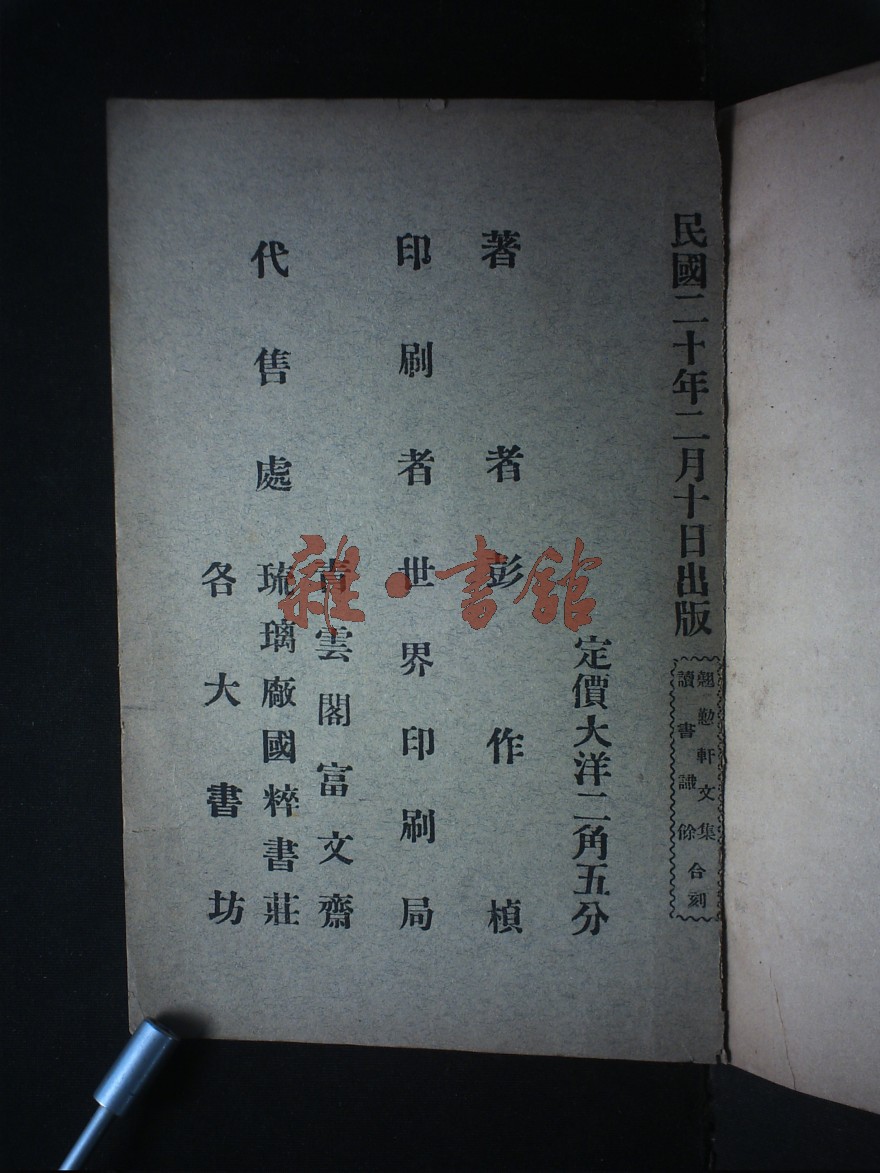 民國二十年二月十日出版
翹懃軒文集
讀書識餘
合刻
定價大洋二角五分
著者彭作楨
印刷者世界印刷局
青雲閣富文齋
代售處琉璃廠國粹書莊
各大書坊
雜·書館